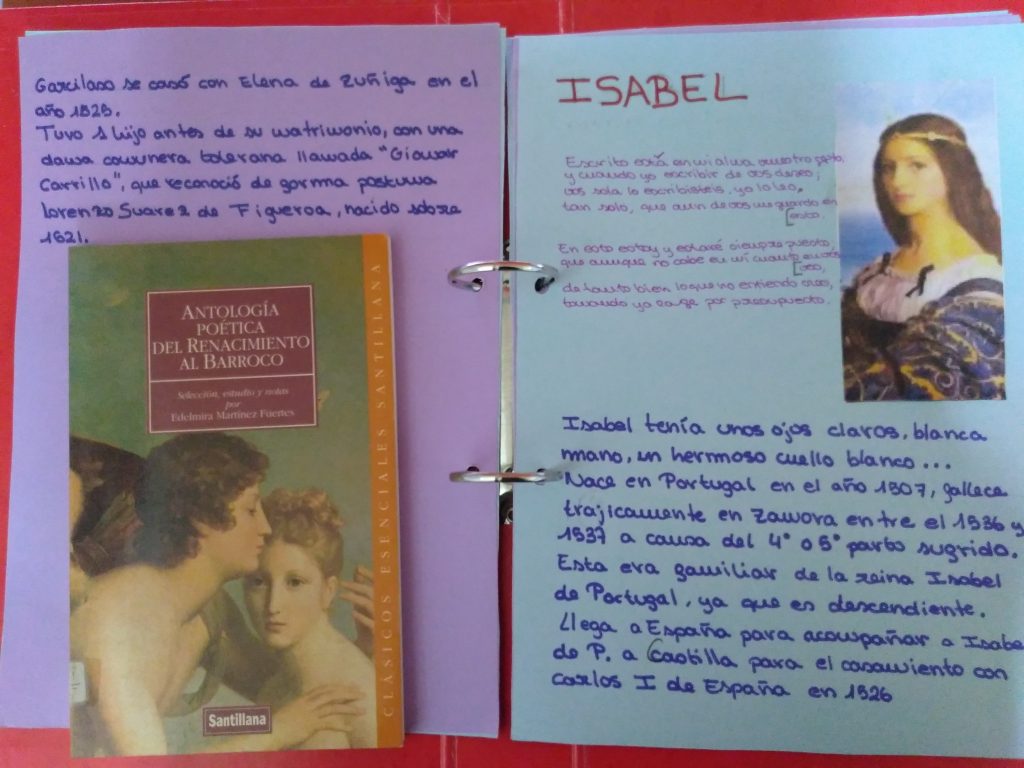 Garcilaso se casó con Elena de Zuñiga en el
año 1525.
Tuvo 1 hijo antes de su matrimonio, con una
dama comunera toledana llamada "Giomar
Carrillo", que reconoció de forma postuma
Lorenzo Suarez de Figueroa, nacido sobre
1521.
ANTOLOGÍA
POÉTICA
DEL RENACIMIENTO
AL BARROCO
Selección, estudio y notas
por
Edelmira Martínez Fuertes
CLÁSICOS ESENCIALES SANTILLANA
Santillana
ISABEL
Escrito está en mi alma vuestro gesto,
y cuando yo escribir de vos deseo;
vos sola lo escribisteis, yo lo leo,
tan solo, que aun de vos me guardo en
[esto.
En esto estoy y estaré siempre puesto;
que aunque no cabe en mí cuanto en vos
[veo,
de tanto bien lo que no entiendo creo,
tomando ya la fe por presupuesto.
Isabel tenía unos ojos claros, blanca
mano, un hermoso cuello blanco...
Nace en Portugal en el año 1507, fallece
trajicamente en Zamora entre el 1536 y
1537 a causa del 4° o 5° parto sufrido.
Esta era familiar de la reina Isabel
de Portugal, ya que es descendiente.
Llega a España para acompañar a Isabe
de P. a Castilla para el casamiento con
Carlos I de España en 1526